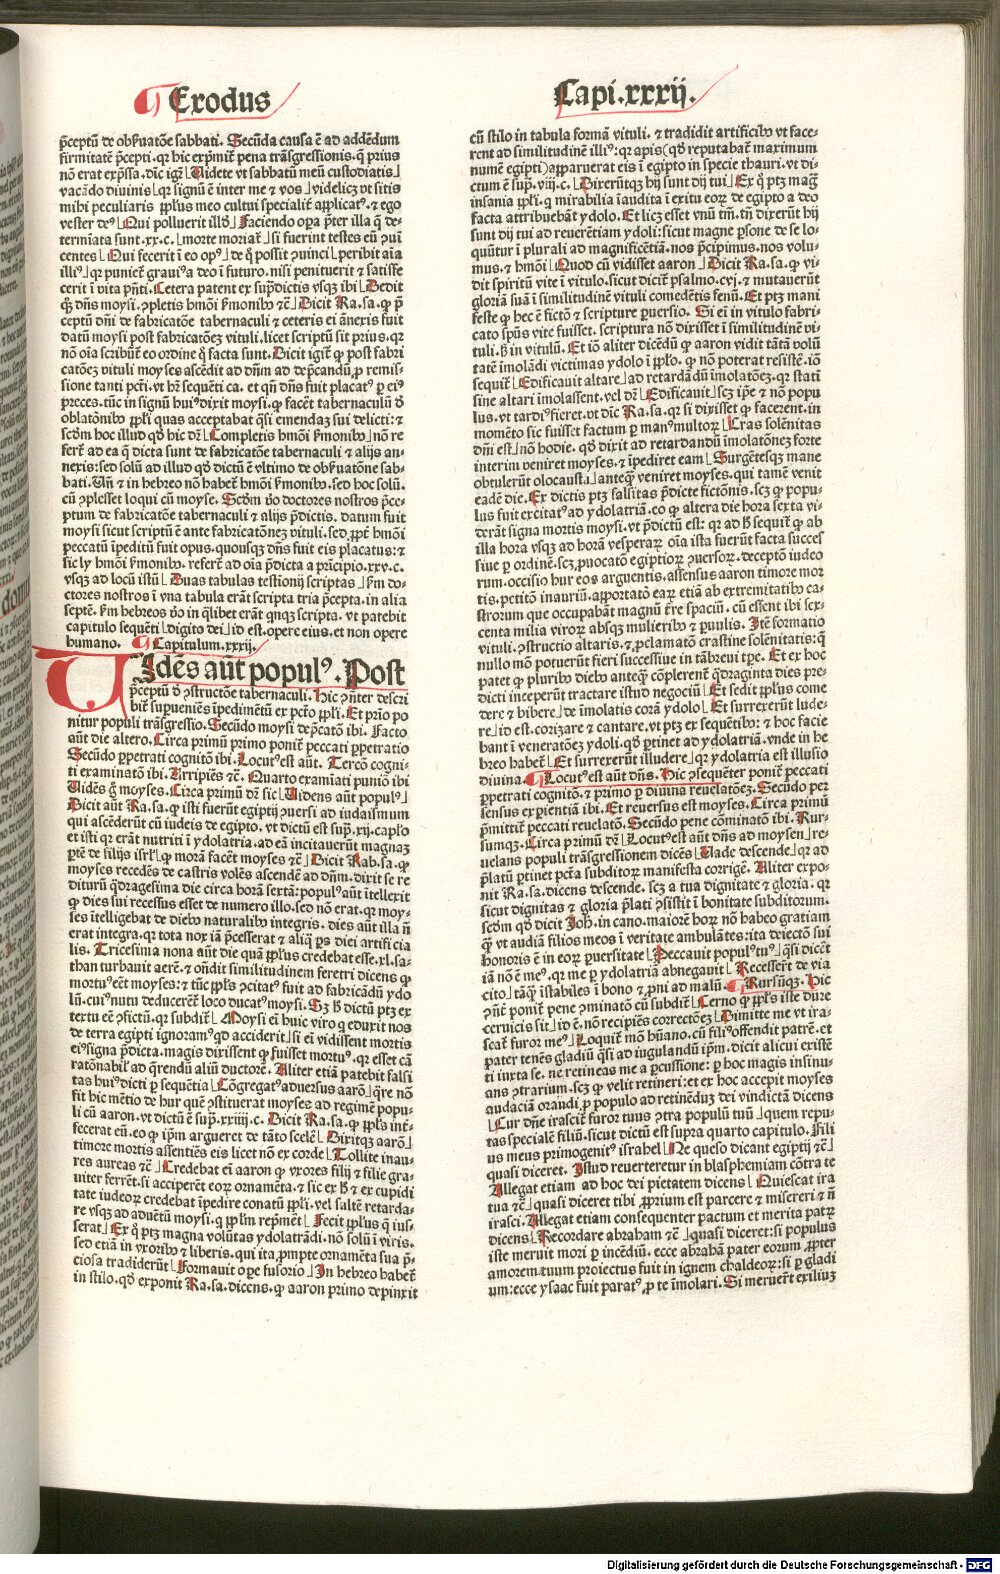 Exodus
Capi.xxxij.
p̄ceptū de obẜuatōe sabbati. Secūda causa ē ad addēdum
firmitatē p̄cepti. qꝛ hic exp̄mit̄ pena trāsgressionis. q̄ prius
nō erat exp̄ssa. dic̄ igit̄ Uidete vt sabbatū meū custodiatis
vacādo diuinis. qꝛ signū ē inter me ⁊ vos videlicꝫ vt sitis
mihi peculiaris pp̄lus meo cultui specialiē applicatꝰ. ⁊ ego
vester deꝰ Qui polluerit illd̄ Faciendo oꝑa p̄ter illa q̄ de-
termīata sunt. xx. c. morte moriat̄ si fuerint testes eū ꝯuī
centes Qui fecerit ī eo opꝰ de q̄ possit ꝯuinci peribit aīa
illiꝰ qꝛ puniet̄ grauiꝰ a deo ī futuro. nisi penituerit ⁊ satisfe
cerit ī vita p̄nti. Cetera patent ex sup̄dictis vsqꝫ ibi Dedit
qꝫ dn̄s moysi. ꝯpletis hmōi ẜmonibꝰ ⁊c̄ Dicit Ra. sa. ꝙ p̄
ceptū dn̄i de fabricatōe tabernaculi ⁊ ceteris ei ānexis fuit
datū moysi post fabricatōeꝫ vituli. licet scriptū sit prius. qꝛ
nō oīa scribūt̄ eo ordine q̄ facta sunt. Dicit igit̄ ꝙ post fabri
catōeꝫ vituli moyses ascēdit ad dn̄m ad dep̄candū ꝓ remis-
sione tanti pctī. vt hr̄ sequēti ca. et qn̄ dn̄s fuit placatꝰ ꝑ eiꝰ
preces. tūc in signū huiꝰ dixit moysi. ꝙ facēt tabernaculū ⁊
oblatōnibꝰ pp̄li quas acceptabat q̄si emendaꝫ sui delicti: ⁊
scd̄m hoc illud qd̄ hic dr̄ Completis hmōi ẜmonibꝰ nō re
fert̄ ad ea q̄ dicta sunt de fabricatōe tabernaculi ⁊ alijs an-
nexis: sed solū ad illud qd̄ dictū ē vltimo de obẜuatōne sab-
bati. Un̄ ⁊ in hebreo nō habet̄ hmōi ẜmonibꝰ. sed hoc solū.
cū ꝯplesset loqui cū moyse. Scd̄m ꝟo doctores nostros p̄ce-
ptum de fabricatōe tabernaculi ⁊ alijs p̄dictis. datum fuit
moysi sicut scriptū ē ante fabricatōneꝫ vituli. sed ꝓpt̄ hmōi
peccatū īpeditū fuit opus. quousqꝫ dn̄s fuit eis placatus: ⁊
sic ly hmōi ẜmonibꝰ. refert̄ ad oīa p̄dicta a prīcipio. xxv. c.
vsqꝫ ad locū istū Duas tabulas testionij scriptas ẜm do-
ctores nostros ī vna tabula erāt scripta tria p̄cepta. in alia
septē. ẜm hebreos ꝟo in q̄libet erāt qnqꝫ scripta. vt patebit
capitulo sequēti digito dei id est. opere eius. et non opere
humano. Capitulum. xxxij.
Uidēs aūt populꝰ. Post
p̄ceptū ꝺ ꝯstructōe tabernaculi. Hic ꝯn̄ter descri
bit̄ supueniēs īpedimētū ex pctō pp̄li. Et prīo po
nitur populi trāsgressio. Secūdo moysi dep̄catō ibi. Facto
aūt die altero. Circa primū primo ponit̄ peccati ꝑpetratio
Secūdo ꝑpetrati cognitō ibi. Locutꝰ est aūt. Tercō cogni-
ti examinatō ibi. Arripiēs ⁊c̄. Quarto examīati puniō ibi
Uidēs q̄ moyses. Circa primū dr̄ sic Uidens aūt populꝰ
Dicit aūt Ra. sa. ꝙ isti fuerūt egiptij ꝯuersi ad iudaismum
qui ascēderūt cū iudeis de egipto. vt dictū est sup̄. xij. caplo
et isti qꝛ erāt nutriti ī ydolatria. ad eā incitauerūt magnaꝫ
p̄tē de filijs isrl̄ ꝙ morā facēt moyses ⁊c̄ Dicit Rab. sa. ꝙ
moyses recedēs de castris volēs ascendē ad dn̄m. dixit se re
diturū q̄dragesima die circa horā sextā: populꝰ aūt ītellexit
ꝙ dies sui recessus esset de numero illo. sed nō erat. qꝛ moy-
ses ītelligebat de diebꝰ naturalibꝰ integris. dies aūt illa n̄
erat integra. qꝛ tota nox iā p̄cesserat ⁊ aliq̄ ps diei artificia
lis. Tricesima nona aūt die quā pp̄lus credebat esse. xl. sa-
than turbauit aerē. ⁊ on̄dit similitudinem feretri dicens ꝙ
mortuꝰ eēt moyses: ⁊ tūc pp̄ls ꝯcitatꝰ fuit ad fabricādū ydo
lū. cuiꝰ nutu deducerēt loco ducatꝰ moysi. Sꝫ ꝧ dictū ptꝫ ex
textu eē ꝯfictū. qꝛ subdit̄ Moysi ei huic viro q̄ eduxit nos
de terra egipti ignoramꝰ qd̄ acciderit si ei vidissent mortis
eiꝰ signa p̄dicta. magis dixissent ꝙ fuisset mortuꝰ. qꝛ esset cā
ratōnabilꝰ ad q̄rendū aliū ductorē. Aliter etiā patebit falsi
tas huiꝰ dicti ꝑ sequētia Cōgregatꝰ aduersus aarō q̄re nō
fit hic mētio de hur quē ꝯstituerat moyses ad regimē popu-
li cū aaron. vt dictū ē sup̄. xxiiij. c. Dicit Ra. sa. ꝙ pp̄ls inte-
fecerat eū. eo ꝙ ip̄m argueret de tāto scelē Dixitqꝫ aarō
timore mortis assentiēs eis licet nō ex corde Tollite inau-
res aureas ⁊c̄ Credebat ei aaron ꝙ vxores filij ⁊ filie gra-
uiter ferrēt. si acciperēt eoꝝ ornamēta. ⁊ sic ex ꝧ ⁊ ex cupidi
tate iudeoꝝ credebat īpedire conatū pp̄li. vel saltē retarda-
re vsqꝫ ad aduētū moysi. q̄ pp̄lm rep̄met Fecit pp̄lus q̄ ius-
serat Ex q̄ ptꝫ magna volūtas ydolatrādi. nō solū ī viris.
sed etiā in vxoribꝰ ⁊ liberis. qui ita ꝓmpte ornamēta sua p̄-
ciosa tradiderūt Formauit oꝑe fusorio In hebreo habet̄
in stilo. qd̄ exponit Ra. sa. dicens. ꝙ aaron primo depinxit
cū stilo in tabula formā vituli. ⁊ tradidit artificibꝰ vt face-
rent ad similitudinē illiꝰ: qꝛ apis (qd̄ reputabat̄ maximum
numē egipti) apparuerat eis ī egipto in specie thauri. vt di-
ctum ē sup̄. viij. c. Dixerūtqꝫ hij sunt dij tui Ex q̄ ptꝫ maḡ
insania pp̄li. q̄ mirabilia īaudita ī exitu eoꝝ de egipto a deo
facta attribuebāt ydolo. Et licꝫ esset vnū tm̄. tn̄ dixerūt hij
sunt dij tui ad reuerētiam ydoli: sicut magne ꝑsone de se lo-
quūtur ī plurali ad magnificētiā. nos p̄cipimus. nos volu-
mus. ⁊ hmōi Quod cū vidisset aaron Dicit Ra. sa. ꝙ vi-
dit spiritū vite ī vitulo. sicut dicit̄ psalmo. cvj. ⁊ mutauerūt
gloriā suā ī similitudinē vituli comedētis fenū. Et ptꝫ mani
feste ꝙ hec ē fictō ⁊ scripture ꝑuersio. Si ei in vitulo fabri-
cato spūs vite fuisset. scriptura nō dixisset ī similitudinē vi-
tuli. ꝧ in vitulū. Et iō aliter dicēdū ꝙ aaron vidit tātā volū
tatē imolādi victimas ydolo ī pp̄lo. ꝙ nō poterat resistē. iō
sequit̄ Edificauit altare ad retardādū imolatōeꝫ. qꝛ stati
sine altari imolassent. vel dr̄ Edificauit scꝫ ip̄e ⁊ nō popu
lus. vt tardiꝰ fieret. vt dic̄ Ra. sa. qꝛ si dixisset ꝙ facerent. in
momēto sic fuisset factum ꝑ manꝰ multoꝝ Cras solēnitas
dn̄i est nō hodie. qd̄ dixit ad retardandū imolatōneꝫ forte
interim veniret moyses. ⁊ īpediret eam Surgētesqꝫ mane
obtulerūt olocausta anteq̄ veniret moyses. qui tamē venit
eadē die. Ex dictis ptꝫ falsitas p̄dicte fictōnis. scꝫ ꝙ popu-
lus fuit excitatꝰ ad ydolatriā. eo ꝙ altera die hora sexta vi-
derāt signa mortis moysi. vt p̄dictū est: qꝛ ad ꝧ sequit̄ ꝙ ab
illa hora vsqꝫ ad horā vesperaꝝ oīa ista fuerūt facta succes
siue ꝑ ordinē. scꝫ ꝓuocatō egiptioꝝ ꝯuersoꝝ. deceptō iudeo
rum. occisio hur eos arguentis. assensus aaron timore mor
tis. petitō inauriū. apportatō eaꝝ etiā ab extremitatibꝰ ca-
stroꝝ. que occupabāt magnū tr̄e spaciū. cū essent ibi sex-
centa milia viroꝝ absqꝫ mulieribꝰ ⁊ paruulis. Itē formatio
vituli. ꝯstructio altaris. ⁊ ꝓclamatō crastine solēnitatis: q̄
nullo mō potuerūt fieri successiue in tā breui tꝑe. Et ex hoc
patet ꝙ pluribꝰ diebꝰ anteqꝫ cōplerent̄ q̄draginta dies pre-
dicti inceperūt tractare istud negociū Et sedit pp̄lus come
dere ⁊ bibere de imolatis corā ydolo Et surrexerūt lude-
re id est. corizare ⁊ cantare. vt ptꝫ ex sequētibꝰ: ⁊ hoc facie
bant ī veneratōeꝫ ydoli. qd̄ ꝑtinet ad ydolatriā. vnde in he
breo habet̄ Et surrexerūt illudere. ⁊ ydolatria est illusio
diuina. Locutꝰ est aūt dn̄s. Hic ꝯsequēter ponit̄ peccati
ꝑpetrati cognitō. ⁊ primo ꝑ diuinā reuelatōeꝫ. Secūdo per
sensus exꝑientiā ibi. Et reuersus est moyses. Circa primū
p̄mittit̄ peccati reuelatō. Secūdo pene cōminatō ibi. Rur-
sumqꝫ. Circa primū dr̄ Locutꝰ est aūt dn̄s ad moysen re-
uelans populi trāsgressionem dicēs Uade descende qꝛ ad
p̄latū ꝑtinet pctā subditoꝝ manifesta corrigē. Aliter expo-
nit Ra. sa. dicens descende. scꝫ a tua dignitate ⁊ gloria. qꝛ
sicut dignitas ⁊ gloria p̄lati ꝯsistit ī bonitate subditorum.
scd̄m qd̄ dicit Joh̄. in cano. maiorē hoꝝ nō habeo gratiam
q̄ vt audiā filios meos ī veritate ambulātes: ita deiectō sui
honoris ē in eoꝝ ꝑuersitate Peccauit populꝰ tuꝰ q̄si dicēt
iā nō ē meꝰ. qꝛ me ꝑ ydolatriā abnegauit Recessert̄ de via
cito tāq̄ īstabiles ī bono ⁊ ꝓni ad malū. Rursūqꝫ. Hic
ꝯn̄t ponit̄ pene ꝯminatō cū subdit̄ Cerno ꝙ pp̄ls iste dure
ceruicis sit id ē. nō recipiēs correctōeꝫ Dimitte me vt ira-
scat̄ furor meꝰ Loquit̄ mō hūano. cū filiꝰ offendit patrē. et
pater tenēs gladiū q̄si ad iugulandū ip̄m. dicit alicui existē
ti iuxta se. ne retineas me a ꝑcussione: ꝑ hoc magis insinu-
ans ꝯtrarium. scꝫ ꝙ velit retineri: et ex hoc accepit moyses
audaciā orandi. ꝓ populo ad retinēduꝫ dei vindictā dicens
Cur dn̄e irascit̄ furor tuus ꝯtra populū tuū quem repu-
tas specialē filiū. sicut dictū est supra quarto capitulo. Fili
us meus primogenitꝰ israhel Ne queso dicant egiptij ⁊c̄
quasi diceret. Istud reuerteretur in blasphemiam cōtra te
Allegat etiam ad hoc dei pietatem dicens Quiescat ira
tua ⁊c̄ quasi diceret tibi ꝓprium est parcere ⁊ misereri ⁊ n̄
irasci. Allegat etiam consequenter pactum et merita patꝝ
dicens Recordare abraham ⁊c̄ quasi diceret: si populus
iste meruit mori ꝑ incēdiū. ecce abrahā pater eorum ꝓpter
amorem tuum proiectus fuit in ignem chaldeoꝝ: si ꝑ gladi
um: ecce ysaac fuit paratꝰ ꝓ te īmolari. Si meruert̄ exiliuꝫ
Digitalisierung gefördert durch die Deutsche Forschungsgemeinschaft - DFG